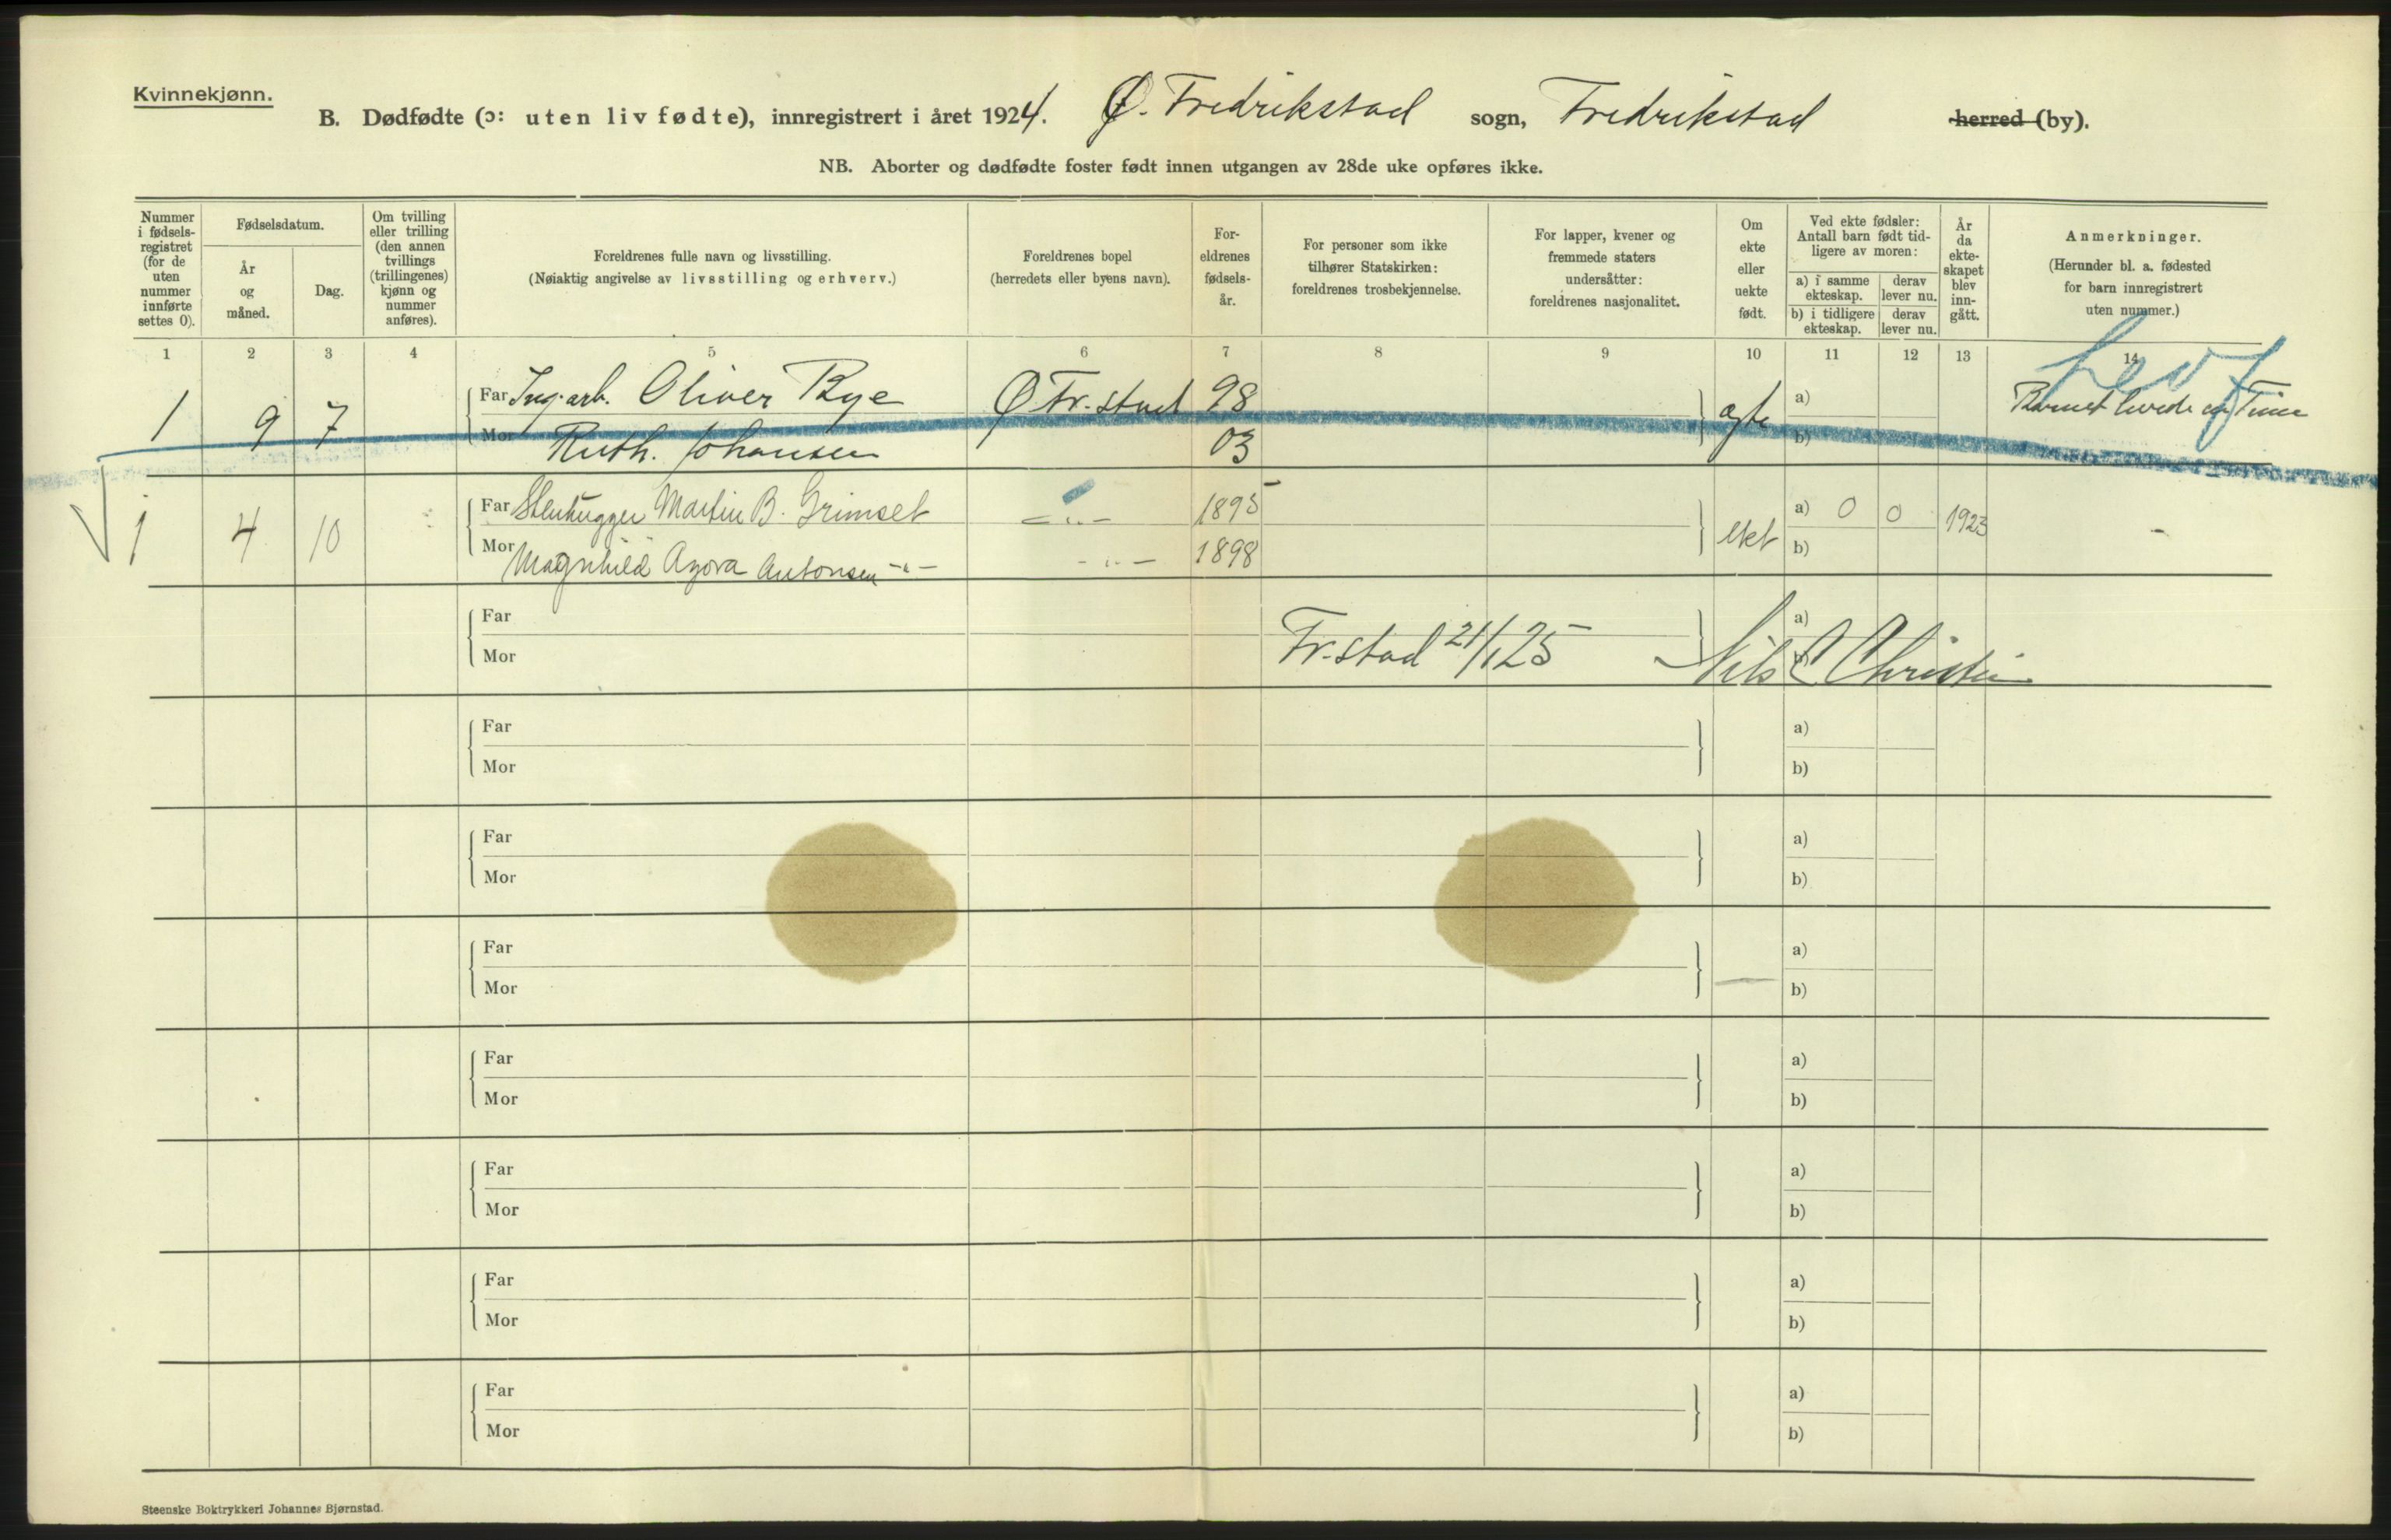 Kvinnekjønn.
B. Dødfødte (ɔ: uten liv fødte), innregistrert i året 1924. Ø. Fredrikstad sogn, Fredrikstad herred (by).
NB. Aborter og dødfødte foster født innen utgangen av 28de uke opføres ikke.
Nummer i fødsels-registret (for de uten nummer innførte settes 0).
Fødselsdatum.
År og måned.
Dag.
Om tvilling eller trilling (den annen tvillings (trillingenes) kjønn og nummer anføres).
Foreldrenes fulle navn og livsstilling.
(Nøiaktig angivelse av livsstilling og erhverv.)
Foreldrenes bopel
(herredets eller byens navn).
For-eldrenes fødsels-år.
For personer som ikke tilhører Statskirken: foreldrenes trosbekjennelse.
For lapper, kvener og fremmede staters undersåtter: foreldrenes nasjonalitet.
Om ekte eller uekte født.
Ved ekte fødsler: Antall barn født tid-ligere av moren:
a) i samme ekteskap. derav lever nu.
b) i tidligere ekteskap. derav lever nu.
År da ekte-skapet blev inn-gått.
Anmerkninger.
(Herunder bl. a. fødested for barn innregistrert uten nummer.)
1 2 3 4 5 6 7 8 9 10 11 12 13 14
Levf
1 9 7 Far Ing.arb. Oliver Rye Ø Fr.stad 98 ægte a) Barnet levede en Time
Mor Ruth. Johansen 03 b)
1 4 10 Far Stenhugger Martin B. Grimset -"- 1895 ekt a) 0 0 1923 -
Mor Magnhild Agora Antonsen -"- -"- 1898 b)
Far a)
Mor Fr.stad 21/1 25 Nils C Christie b)
Far a)
Mor b)
Far a)
Mor b)
Far a)
Mor b)
Far a)
Mor b)
Far a)
Mor b)
Far a)
Mor b)
Far a)
Mor b)
Steenske Boktrykkeri Johannes Bjørnstad.